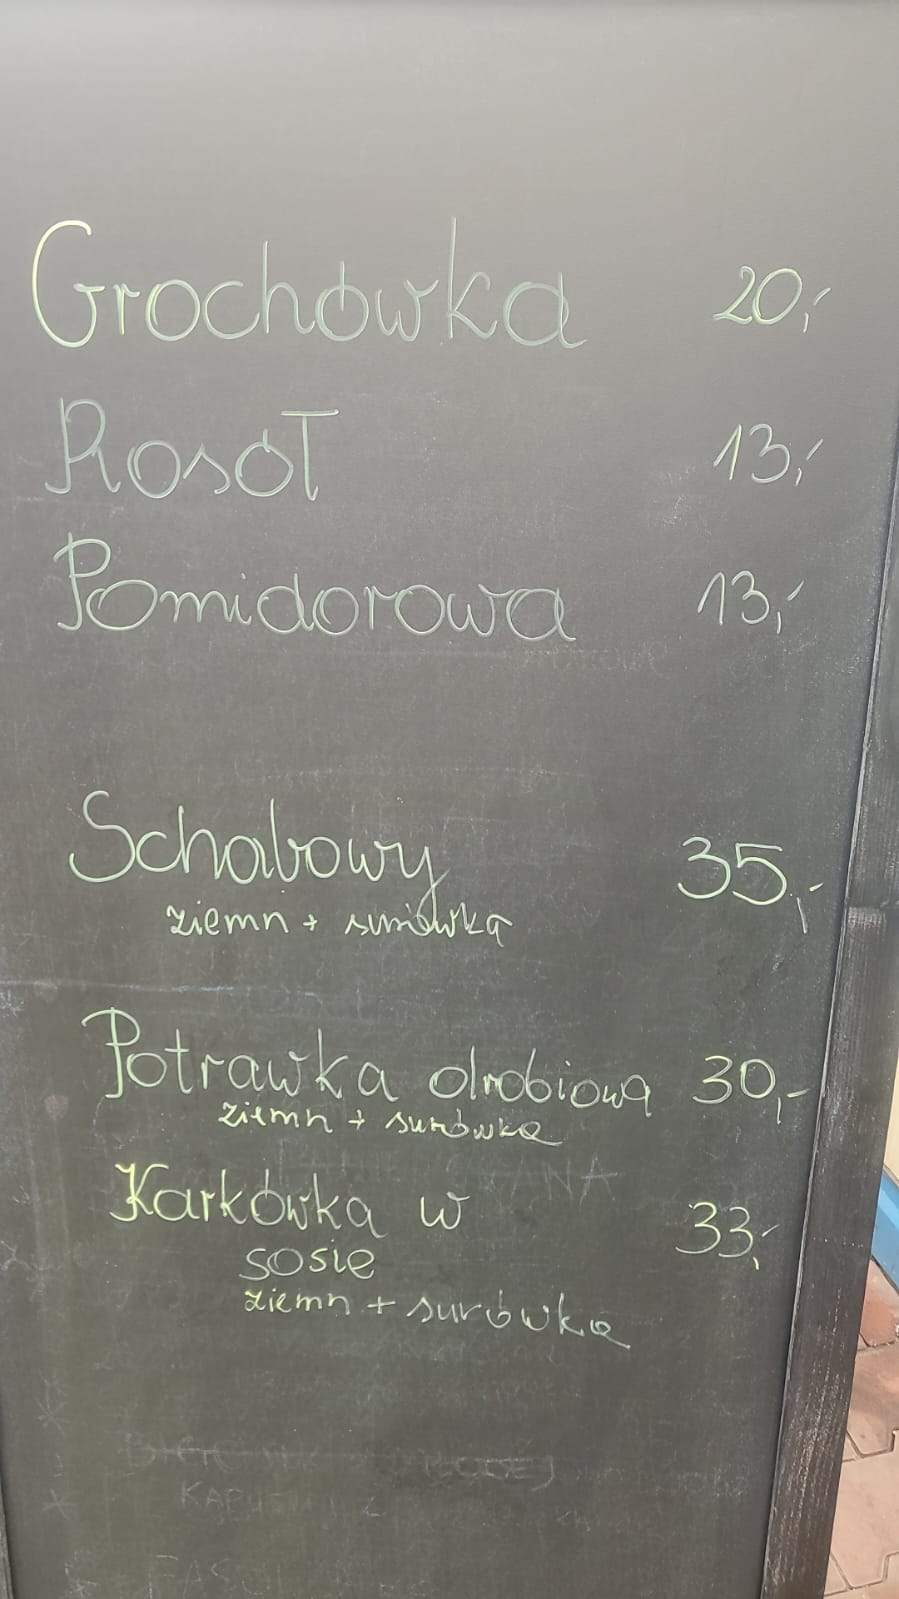 Grochówka 20,-
Rosół 13,-
Pomidorowa 13,-
Schabowy 35,-
ziemn + surówka
Potrawka drobiowa 30,-
ziemn + surówka
Karkówka w 33,-
sosie
ziemn + surówka